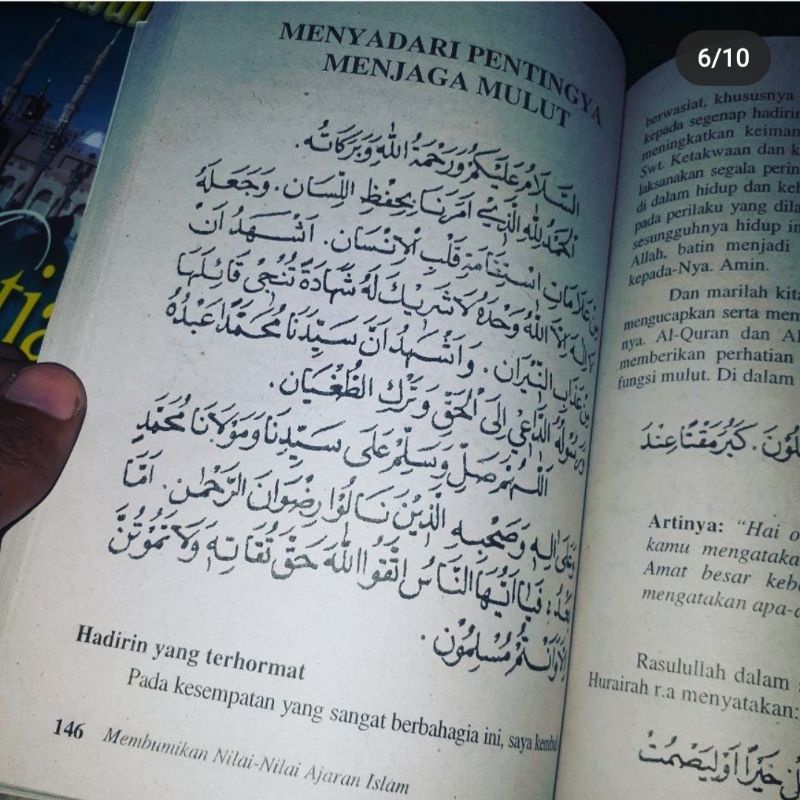 6/10
MENYADARI PENTINGYA
MENJAGA MULUT
السَّلَامُ عَلَيْكُمْ وَرَحْمَةُ اللهِ وَبَرَكَاتُه.
الْحَمْدُ لِلّٰهِ الَّذِيْ أَمَرَنَا بِحِفْظِ اللِّسَان. وَجَعَلَهُ
مِنْ عَلَامَاتِ اسْتِقَامَةِ قَلْبِ الْاِنْسَان. اَشْهَدُ اَنْ
لَا اِلٰهَ اِلَّا اللهُ وَحْدَهُ لَا شَرِيْكَ لَهُ شَهَادَةً تُنْجِى قَائِلَهَا
مِنْ عَذَابِ النِّيْرَان. وَاَشْهَدُ اَنَّ سَيِّدَنَا مُحَمَّدًا عَبْدُهُ
وَرَسُوْلُهُ الدَّاعِيْ اِلَى الْحَقِّ وَتَرْكِ الطُّغْيَان.
اَللّٰهُمَّ صَلِّ وَسَلِّمْ عَلَى سَيِّدِنَا وَمَوْلَانَا مُحَمَّدٍ
وَعَلَى اٰلِهِ وَصَحْبِهِ الَّذِيْنَ نَالُوْا رِضْوَانَ الرَّحْمٰن. اَمَّا
بَعْدُ: فَيَااَيُّهَا النَّاسُ اتَّقُوا اللهَ حَقَّ تُقَاتِهِ وَلَا تَمُوْتُنَّ
اِلَّا وَاَنْتُمْ مُسْلِمُوْن.
Hadirin yang terhormat
Pada kesempatan yang sangat berbahagia ini, saya
146 Membumikan Nilai-Nilai Ajaran Islam
berwasiat, khususnya
kepada segenap hadirin
meningkatkan
Swt. Ketakwaan dan
laksanakan segala
di dalam hidup dan
pada perilaku yang
sesungguhnya hidup
Allah, batin menjadi
kepada-Nya. Amin.
Dan marilah
mengucapkan serta
nya. Al-Quran dan
memberikan perhatian
fungsi mulut. Di dalam
كَبُرَ مَقْتًا عِنْدَ
Artinya: "Hai
kamu
Amat besar
mengatakan
Rasulullah dalam
Hurairah r.a menyatakan:
خَيْرًا اَوْ لِيَصْمُتْ